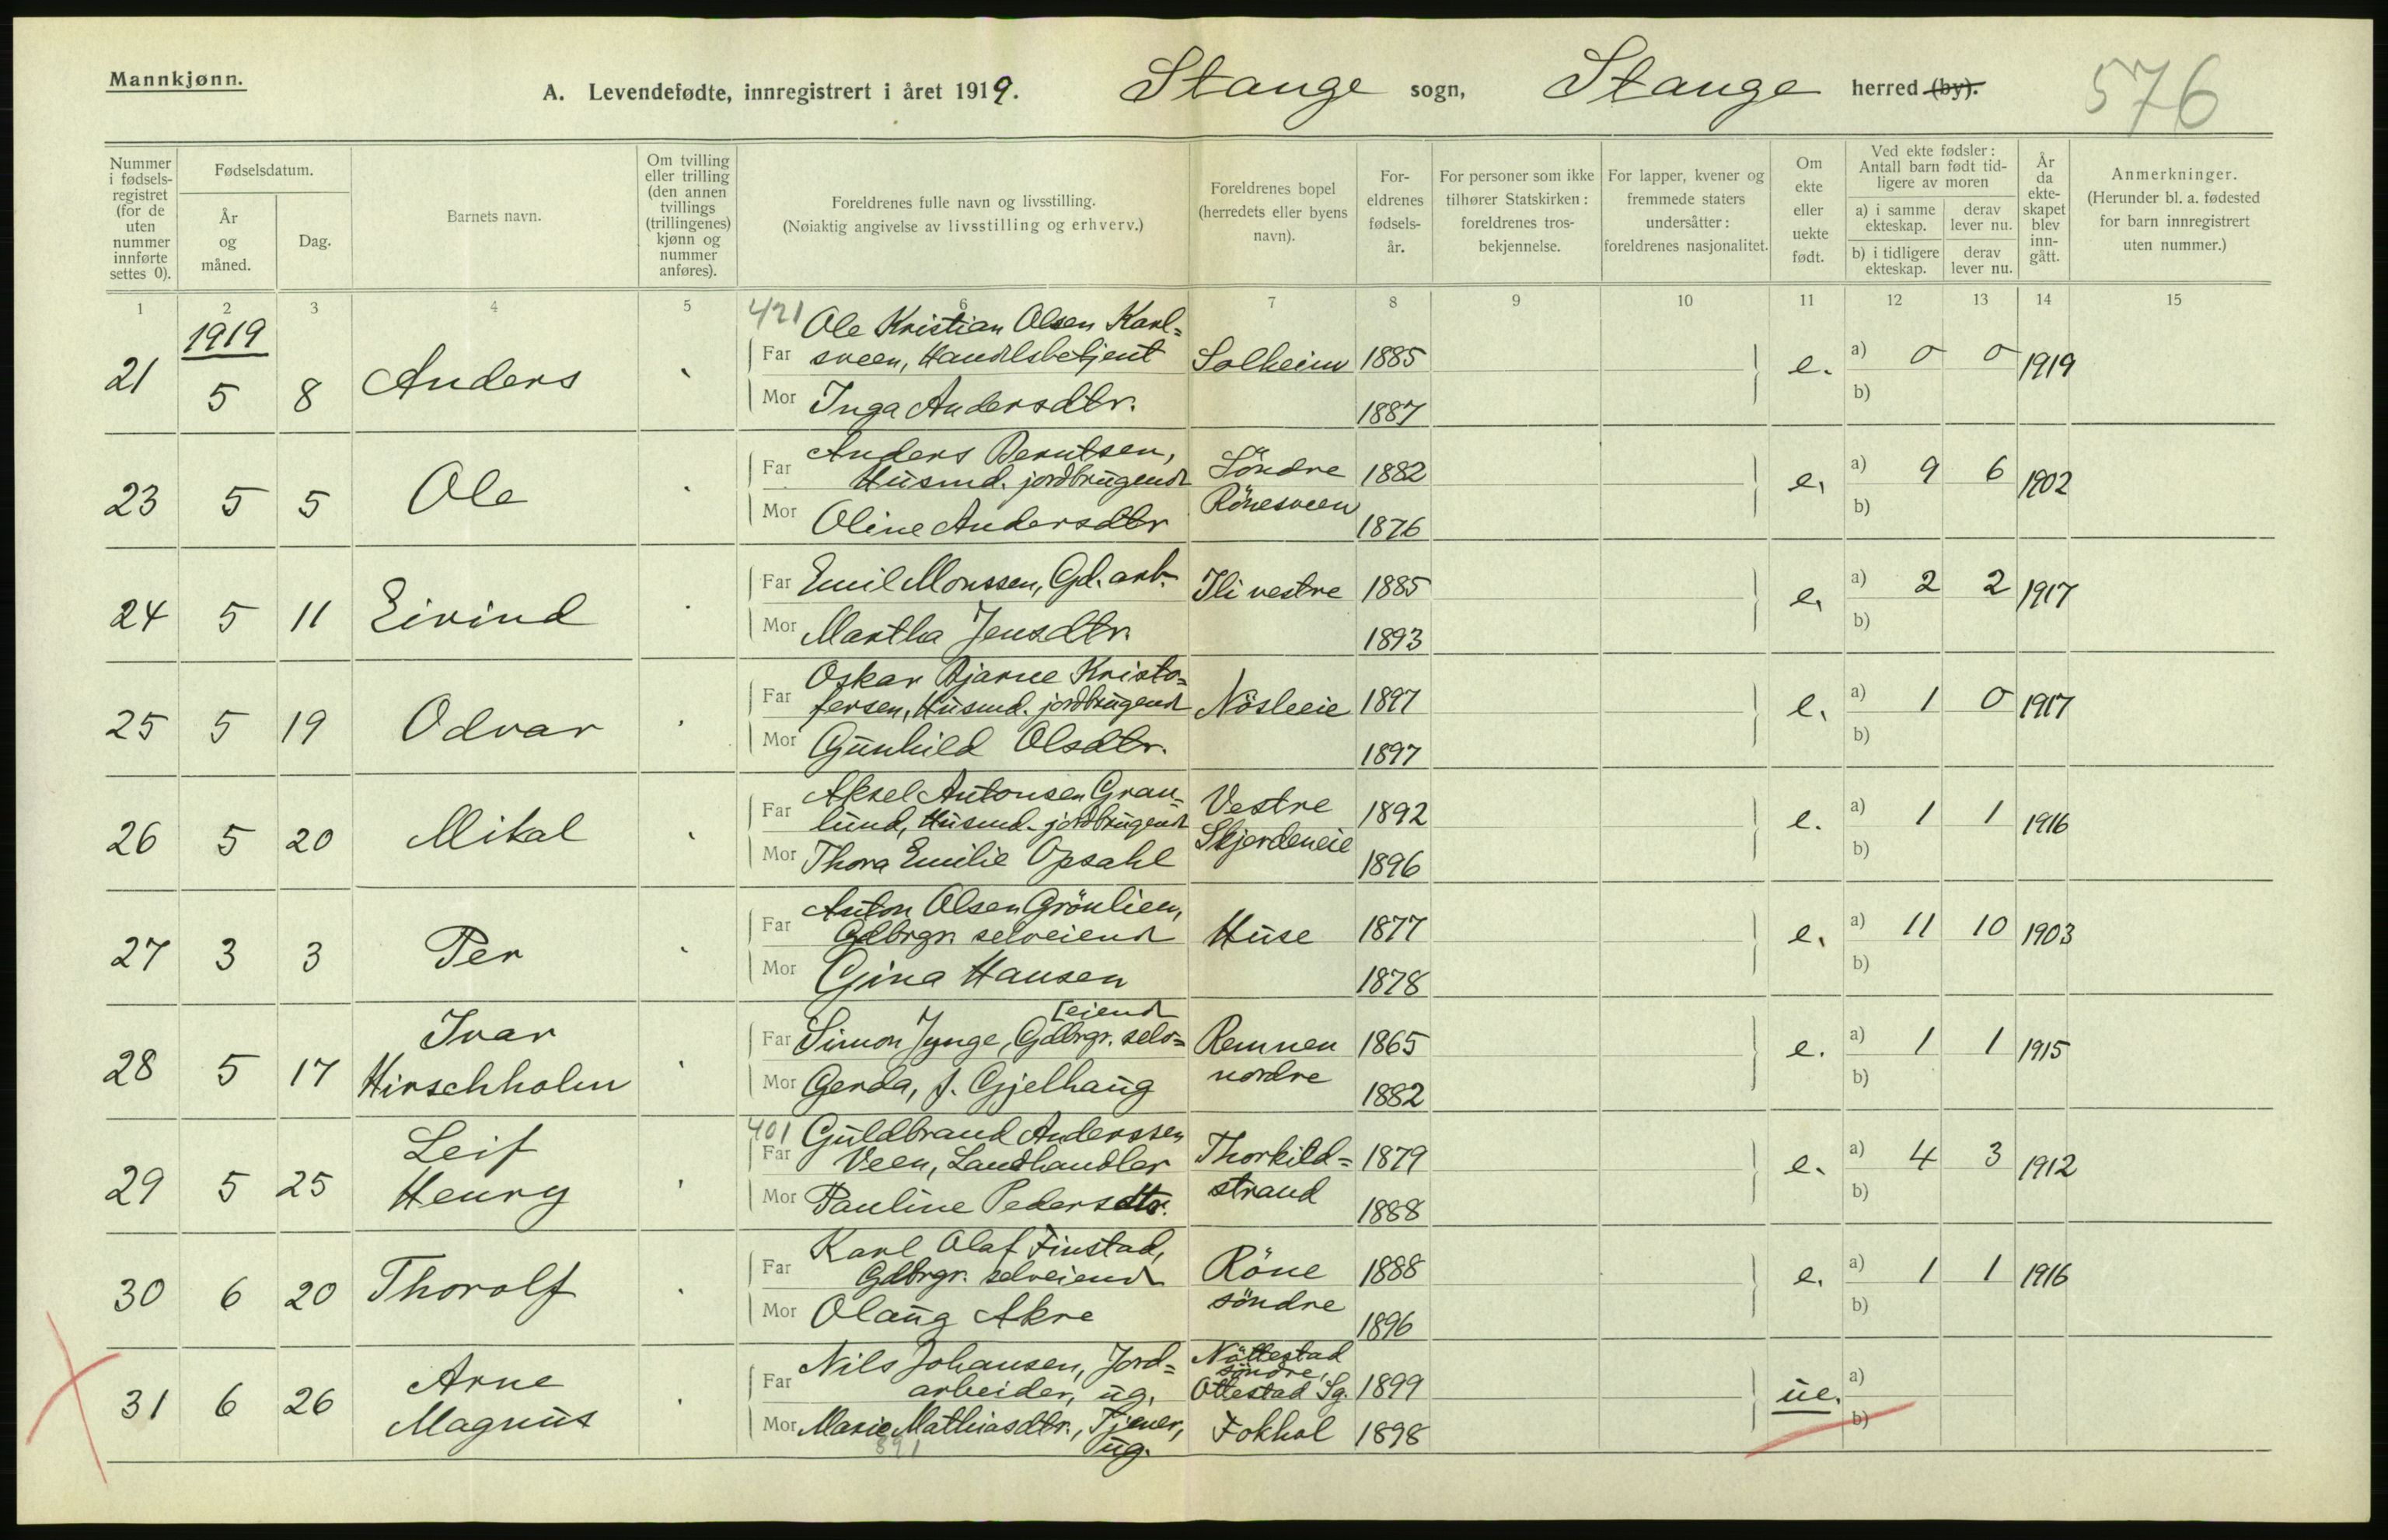 Mannkjønn.
A. Levendefødte, innregistrert i året 1919. Stange sogn, Stange herred (by). 576
Nummer i fødsels-registret (for de uten nummer innførte settes 0).
Fødselsdatum.
År og måned.
Dag.
Barnets navn.
Om tvilling eller trilling (den annen tvillings (trillingenes) kjønn og nummer anføres).
Foreldrenes fulle navn og livsstilling.
(Nøiaktig angivelse av livsstilling og erhverv.)
Foreldrenes bopel (herredets eller byens navn).
For-eldrenes fødsels-år.
For personer som ikke tilhører Statskirken: foreldrenes tros-bekjennelse.
For lapper, kvener og fremmede staters undersåtter: foreldrenes nasjonalitet.
Om ekte eller uekte født.
Ved ekte fødsler: Antall barn født tid-ligere av moren
a) i samme ekteskap. derav lever nu.
b) i tidligere ekteskap. derav lever nu.
År da ekte-skapet blev inn-gått.
Anmerkninger.
(Herunder bl. a. fødested for barn innregistrert uten nummer.)
1 2 3 4 5 6 7 8 9 10 11 12 13 14 15
1919
421 Ole Kristian Olsen Karl=
21 5 8 Anders Far sveen, Handelsbetjent Solheim 1885 e. a) 0 0 1919
Mor Inga Andersdtr. 1887 b)
Anders Berntsen,
23 5 5 Ole Far Husmd. jordbrugend Söndre Rönesveen 1882 e. a) 9 6 1902
Mor Oline Andersdtr 1876 b)
24 5 11 Eivind Far Emil Monssen, Gd. arb. Ili vestre 1885 e. a) 2 2 1917
Mor Martha Jensdtr. 1893 b)
Oskar Bjarne Kristo=
25 5 19 Odvar Far fersen, Husmd. jordbrugend Nösleeie 1897 e. a) 1 0 1917
Mor Gunhild Olsdtr. 1897 b)
Aksel Antonsen Gran=
26 5 20 Mikal Far lund, Husmd. jordbrugend Vestre Skjerdeneie 1892 e. a) 1 1 1916
Mor Thora Emilie Opsahl 1896 b)
Anton Olsen Grönlien,
27 3 3 Per Far Gdbrgr. selveiend Huse 1877 e. a) 11 10 1903
Mor Gina Hansen 1878 b)
[eiend
28 5 17 Ivar Hirschholm Far Simon Jynge, Gdbrgr. selv= Remmen nordre 1865 e. a) 1 1 1915
Mor Gerda, f. Gjelhaug 1882 b)
401 Guldbrand Anderssen
29 5 25 Leif Henry Far Veen, Landhandler Thorkild=strand 1879 e. a) 4 3 1912
Mor Pauline Pedersdtr. 1888 b)
Karl Olaf Finstad,
30 6 20 Thorolf Far Gdbrgr. selveiend Röne söndre 1888 e. a) 1 1 1916
Mor Olaug Akre 1896 b)
Nils Johansen, Jord=
31 6 26 Arne Magnus Far arbeider, ug. Nöttestad söndre, Ottestad Sg. 1899 ue. a)
Mor Marie Mathiasdtr., Tjener, ug. Fokhol 1898 b)
891